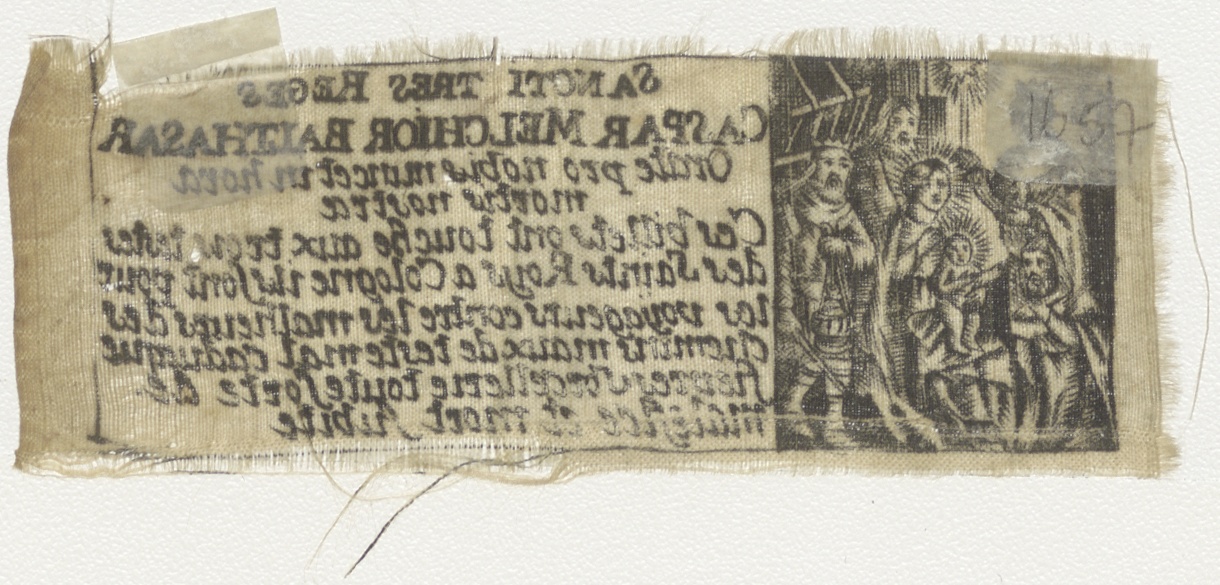 SANCTI TRES REGES
CASPAR MELCHIOR BALTHASAR
Orate pro nobis nunc et in hora
mortis nostræ
Ces billets ont touché aux testes
des Saints Roys a Cologne ils sont pour
les voyageurs contre les malheurs des
chemins maux de teste mal caduque
fievres sorcellerie toute sorte de
malefice et mort subite